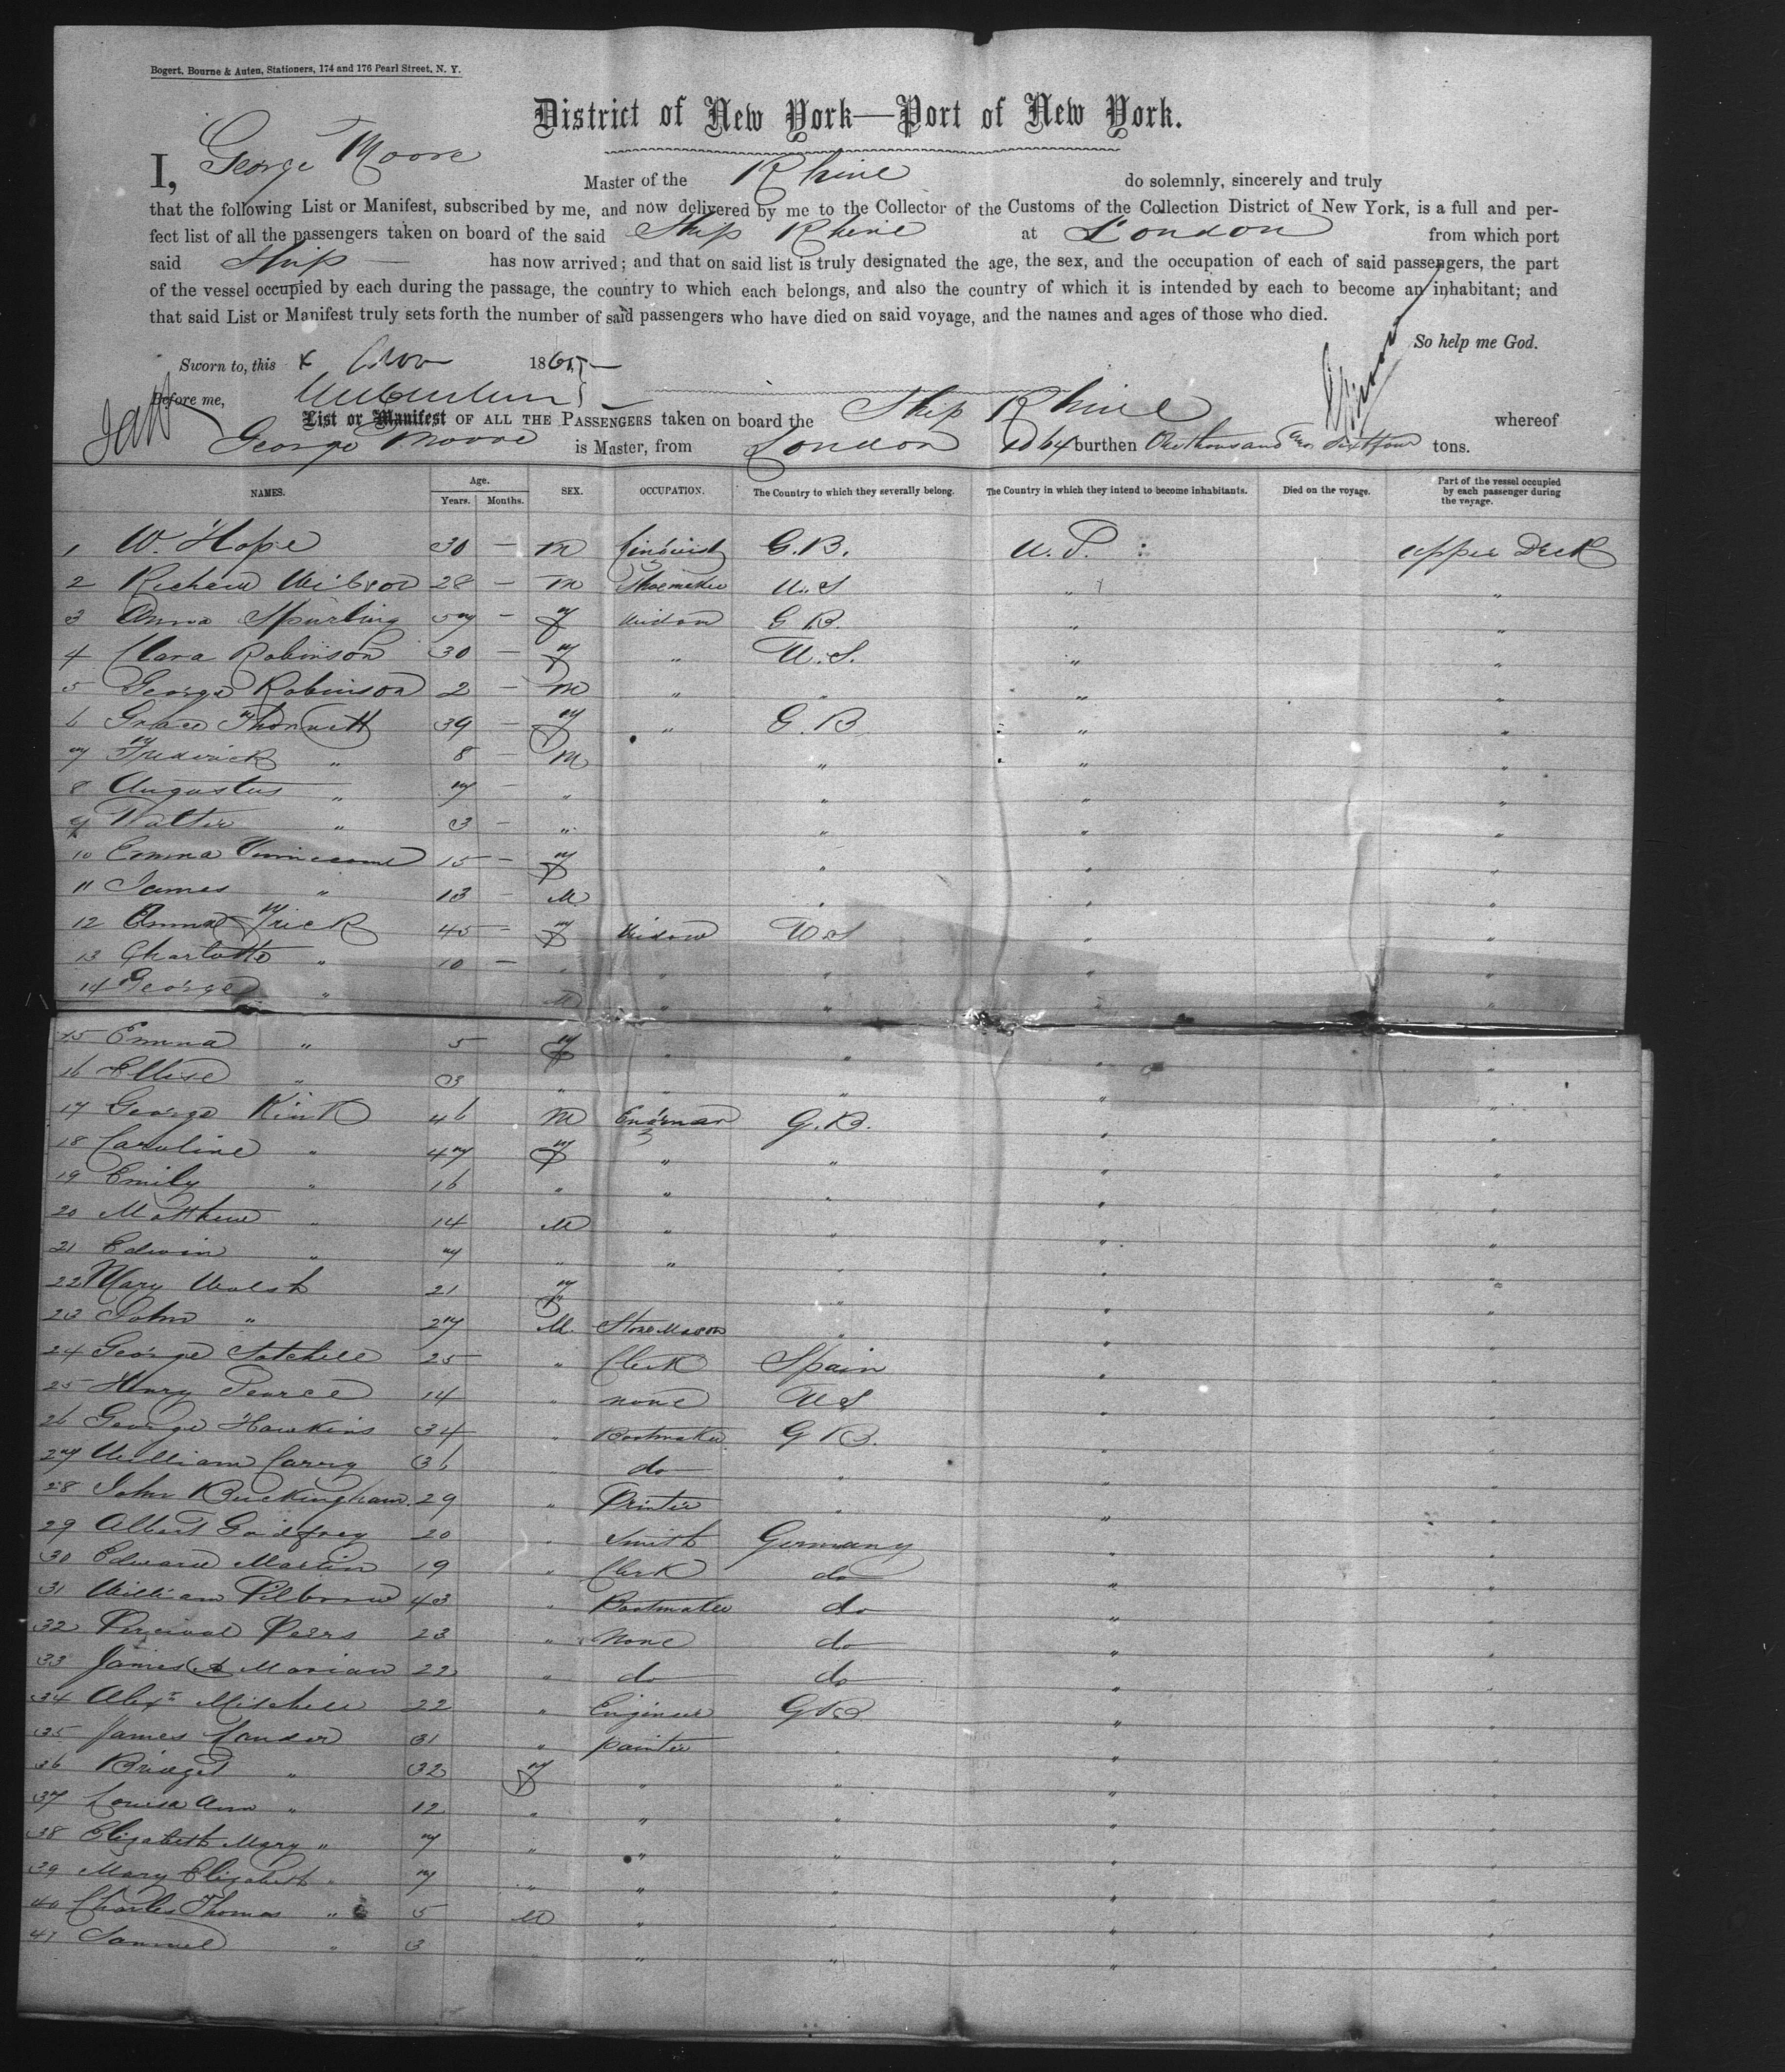 Bogert, Bourne & Auten, Stationers, 174 and 176 Pearl Street, N. Y.
District of New York—Port of New York.
I, George Moore Master of the Rhine do solemnly, sincerely and truly
that the following List or Manifest, subscribed by me, and now delivered by me to the Collector of the Customs of the Collection District of New York, is a full and per-
fect list of all the passengers taken on board of the said Ship Rhine at London from which port
said Ship has now arrived; and that on said list is truly designated the age, the sex, and the occupation of each of said passengers, the part
of the vessel occupied by each during the passage, the country to which each belongs, and also the country of which it is intended by each to become an inhabitant; and
that said List or Manifest truly sets forth the number of said passengers who have died on said voyage, and the names and ages of those who died.
So help me God.
Sworn to, this Nov 1865
Before me,
List or Manifest OF ALL THE PASSENGERS taken on board the Ship Rhine whereof
George Moore is Master, from London 1064 burthen One thousand & Sixtfour tons.
NAMES. Age. Years. Months. SEX. OCCUPATION. The Country to which they severally belong. The Country in which they intend to become inhabitants. Died on the voyage. Part of the vessel occupied by each passenger during the voyage.
1 W. Hope 30 — M G.B. U.S. upper Deck
2 Richard 28 — M Shoemaker U.S " "
3 Anna Spurling 57 — F Widow G B. " "
4 Clara Robinson 30 — F " U.S. " "
5 George Robinson 2 — M " " " "
6 Grace 39 — F " G.B " "
7 Frederick " 8 — M " " "
8 Augustus " 7 — " " " "
9 Walter " 3 — " " " "
10 Emma 15 — F " " "
11 James " 13 — M " " "
12 Emma Frick 45 — F Widow U.S " "
13 Charlotte " 10 — " " " " "
14 George " M " " " "
15 Emma " 5 F " " " "
16 Ellise " 3 " " " " "
17 George Kink 46 M G.B. " "
18 Caroline " 47 F " " " "
19 Emily " 16 " " " " "
20 Matthew " 14 M " " " "
21 Edwin " 7 " " " " "
22 Mary Walsh 21 F " " "
23 John " 27 M. Stone Mason " " "
24 George Satchell 25 " Clerk Spain " "
25 Henry Pearce 14 " none U S " "
26 George Hawkins 34 " Bootmaker G B. " "
27 William Carry 36 " do " " "
28 John Buckingham 29 " Printer " " "
29 Albert Godfrey 20 " Smith Germany " "
30 Edward Martin 19 " Clerk do " "
31 William Pilbrow 43 " Bootmaker do " "
32 Percival Peers 23 " None do " "
33 James Marian 22 " do do " "
34 Alexr Mitchell 22 " Engineer G B " "
35 James Lander 31 " painter " " "
36 Bridget " 32 F " " " "
37 Louisa Ann " 12 " " " " "
38 Elizabeth Mary " 7 " " " " "
39 Mary Elizabeth " 7 " " " " "
40 Charles Thomas " 5 M " " " "
41 Samuel " 3 " " " "